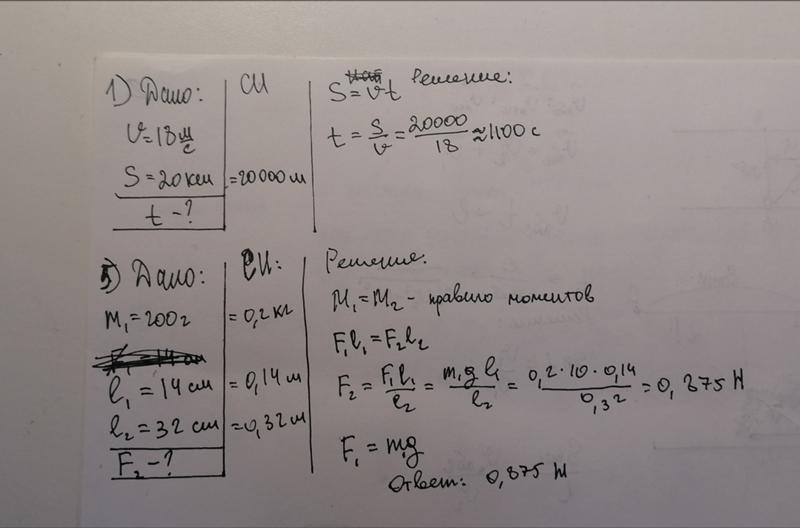 1) Дано:
V=18 м/с
S=20 км
t-?
СИ
=20000 м
Решение:
S=Vt
t = S/V = 20000/18 ≈ 1100 с
5) Дано:
m₁=200 г
l₁=14 см
l₂=32 см
F₂-?
СИ:
=0,2 кг
=0,14 м
=0,32 м
Решение:
M₁=M₂ - правило моментов
F₁l₁=F₂l₂
F₂ = F₁l₁/l₂ = m₁gl₁/l₂ = 0,2·10·0,14/0,32 = 0,875 Н
F₁=m₁g
Ответ: 0,875 Н